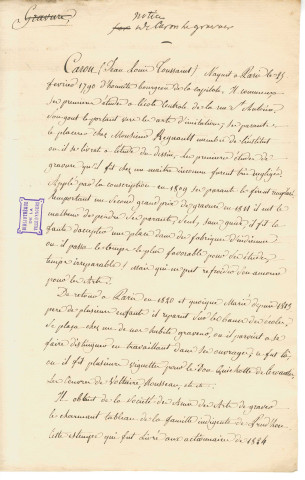 Gravure
notice
de Caron le graveur
Caron (Jean Louis Toussaint) Naquit à Paris le 15
février 1790 d'honnête bourgeois de la capitale. Il commença
ses premières étude à l'école Centrale de la rue St Antoine,
son gout le portait vers les arts d'imitation; ses parents
le placèrent chez Monsieur Regnault membre de l'institut
où il se livra à l'étude du dessin, les premières étude de
gravure qu'il fit chez un maître
Appelé par la conscription en 1809 ses parents le firent remplacer
remportant un Second grand prix de gravure en 1811 il eut le
malheur de perdre ses parents
faute d'accepter une place dans les
où il passa le temps le plus favorable pour les études,
temps irréparable! Mais qui ne put refroidir son amour
pour les Arts.
De retour à Paris en 1820 et quoique Marié depuis 1813
père de plusieurs enfants il reparut sur les bancs des écoles,
se plaça chez un de nos habiles graveurs, où il parvint à se
faire distinguer en travaillant dans ses ouvrages; ce fut là,
où il fit plusieurs vignettes pour le Don Quichotte
Les Œuvres de Voltaire, Rousseau, etc
Il obtint de la Société des Amis des Arts de graver
le charmant tableau de la famille indigente de Prudhon
Cette estampe qui fut livré aux actionnaires de 1824